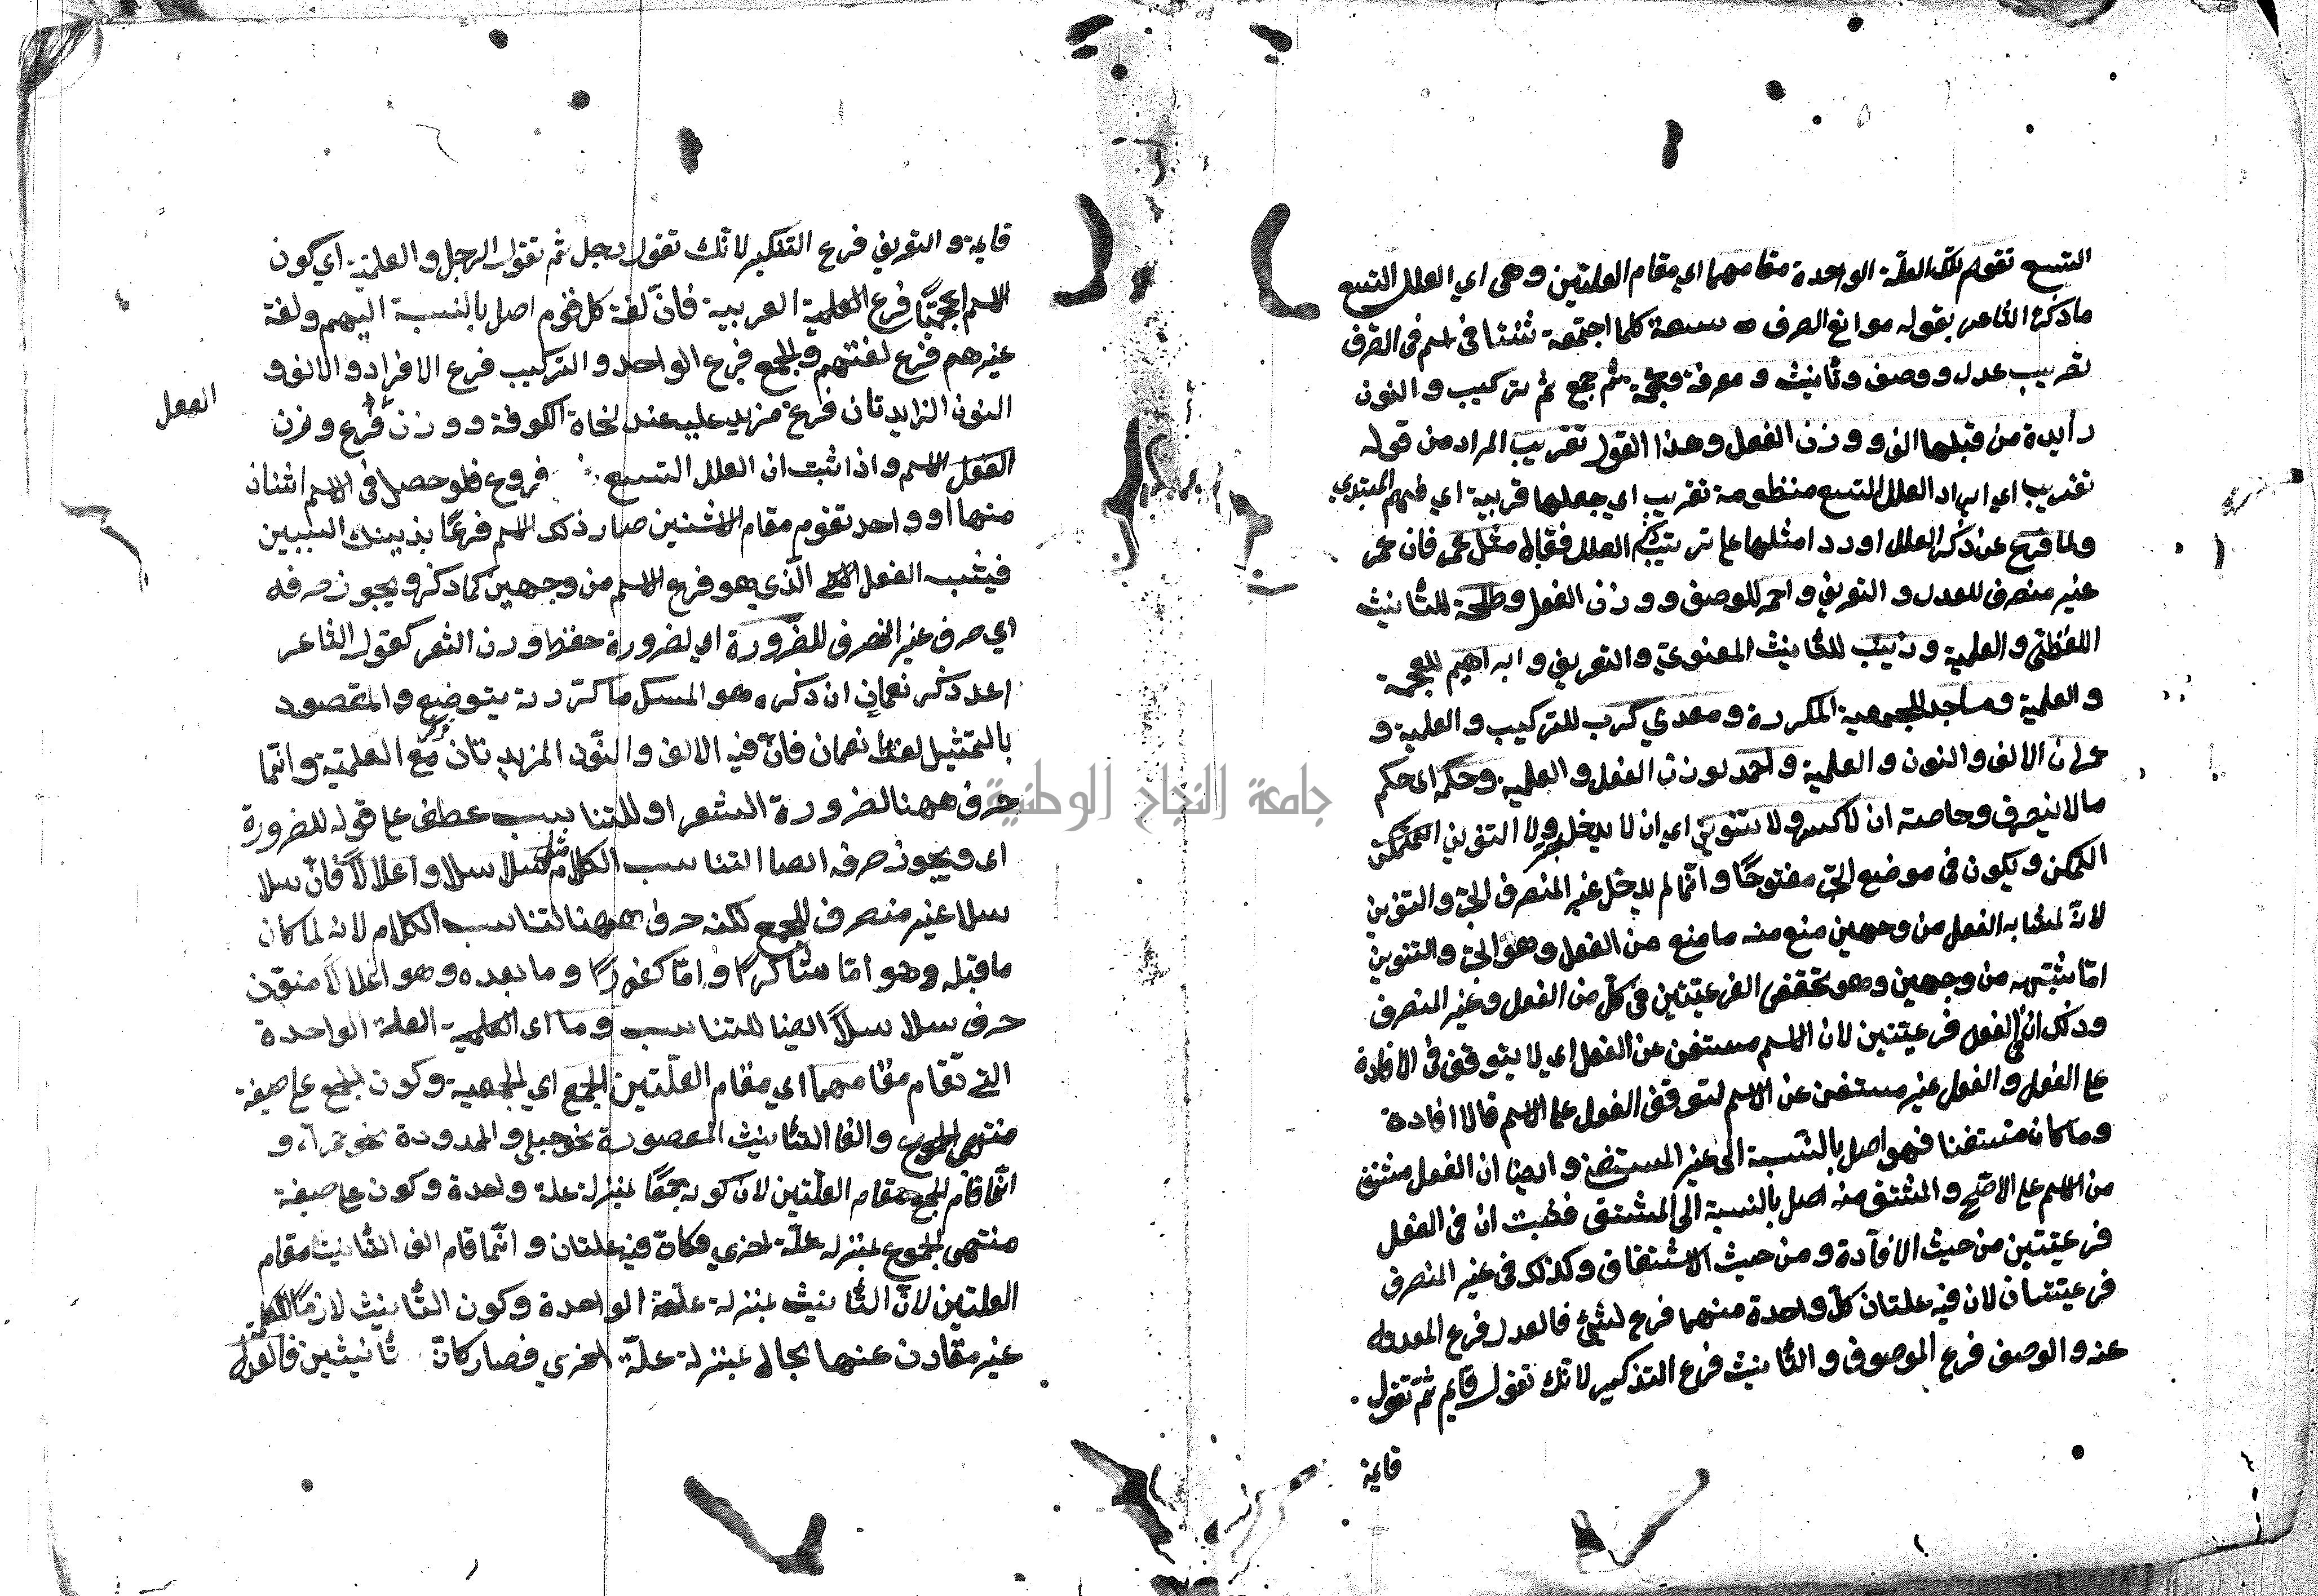 التسع تقوم تلك العلة الواحدة مقامهما اي مقام العلتين وهى اي العلل التسع
ما ذكره الشاعر بقوله موانع الصرف تسعة كلما اجتمعة ثنتا فى اسم فى الصرف
تقريب عدل ووصف وتأنيث و معرفة وعجمة ثم جمع ثم تركيب و النون
زايدة من قبلها الف ووزن الفعل وهذا القول تقريب المراد من قوله
تقريب اي ايراد العلل التسع منظومة تقريب اي جعلها قريبة اي فهم المبتدي
ولما فرغ عن ذكر العلل اورد امثلها على ترتيب ذكر العلل فقال مثل عمر فان عمر
غير منصرف للعدل و التعريف و احمر للوصف ووزن الفعل وطلحة للتأنيث
اللفظي و العلمية وزينب للتأنيث المعنوي و التعريف و ابراهيم للعجمة
و العلمية ومساجد للجمعية المكررة ومعدي كرب للتركيب و العلمية و
عمران الالف و النون و العلمية و احمد لوزن الفعل و العلمية وحكمه اى حكم
مالا ينصرف وخاصته ان لا كسر ولا تنوين اي ان لا يدخل جر ولا التنوين التمكن
التمكن ويكون فى موضع الجر مفتوحًا و انما لم يدخل غير المنصرف الجر و التنوين
لانه لمشابه الفعل من وجهين منع منه ما منع من الفعل وهو الجر و التنوين
اما شبهه من وجهين وهو تحقق الفرعيتين فى كل من الفعل وغير المنصرف
وذلك ان فى الفعل فرعيتين لان الاسم مستغن عن الفعل اي لا يتوقف فى الافادة
على الفعل و الفعل غير مستغن عن الاسم لتوقف الفعل على الاسم فالا افادة
وما كان مستغنا فهو اصل بالنسبة الى غير المستغن و ايضا ان الفعل مشتق
من الاسم على الاصح و المشتق منه اصل بالنسبة الى المشتق فثبت ان فى الفعل
فرعيتين من حيث الافادة ومن حيث الاشتقاق وكذلك فى غير المنصرف
فرعيتان لان فيه علتان كل واحدة منهما فرع لشئ فالعدل فرع المعدول
عنه و الوصف فرع الموصوف و التأنيث فرع التذكير لانك تقول قايم ثم تقول
قايمة
قايمة و التعريف فرع التنكير لانك تقول رجل ثم تقول الرجل و العلمية اي كون
الاسم اعجميًا فرع العربية فان لغة كل قوم اصل بالنسبة اليهم ولغة
غيرهم فرع لغتهم و الجمع فرع الواحد و التركيب فرع الافراد و الالف و
النون الزايدتان فرع مزيد عليه عند نحاة الكوفة ووزن فرع وزن
الفعل
الفعل الاسم و اذا ثبت ان العلل التسع فروع فلو حصل فى الاسم اثنان
منها او واحد تقوم مقام الاثنين صار ذلك الاسم فرعًا بذينك السببين
فيشبه الفعل الذي هو فرع الاسم من وجهين كما ذكر ويجوز صرفه
اي صرف غير المنصرف للضرورة اي لضرورة حفظ وزن الشعر كقول الشاعر
اعد ذكر نعمان ان ذكره هو المسك ما كررته يتوضع و المقصود
بالتمثيل لفظ نعمان فان فيه الالف و النون المزيدتان مع العلمية و انما
صرف ههنا لضرورة الشعر او للتناسب عطف على قوله للضرورة
اى ويجوز صرفه ايضا التناسب الكلام مثل سلاسلا و اغلالاً فان سلا
سلا غير منصرف للجمع لكنه صرف ههنا لتناسب الكلام لانه لما كان
ما قبله وهو اما شاكرًا و اما كفورًا وما بعده وهو اغلالاً منون
صرف سلاسلاً ايضا للتناسب وما اى العلة الواحدة
التى تقام مقامهما اي مقام العلتين الجمع اي الجمعية وكون الجمع على صيغة
منتهى الجموع و الفا التأنيث المقصورة نحو حبلى و الممدودة نحو حمراء و
انما قام الجمع مقام العلتين لان كونه جمعًا بمنزلة علة واحدة وكون على صيغة
منتهى الجموع بمنزلة علة اخري فكان فيه علتان و انما قام الف التأنيث مقام
العلتين لان التأنيث بمنزلة علة الواحدة وكون التأنيث لازمًا للكلمة
غير مقارن عنها بحال بمنزلة علة اخري فصار كان تأنيثين فالعدل
جامعة النجاح الوطنية